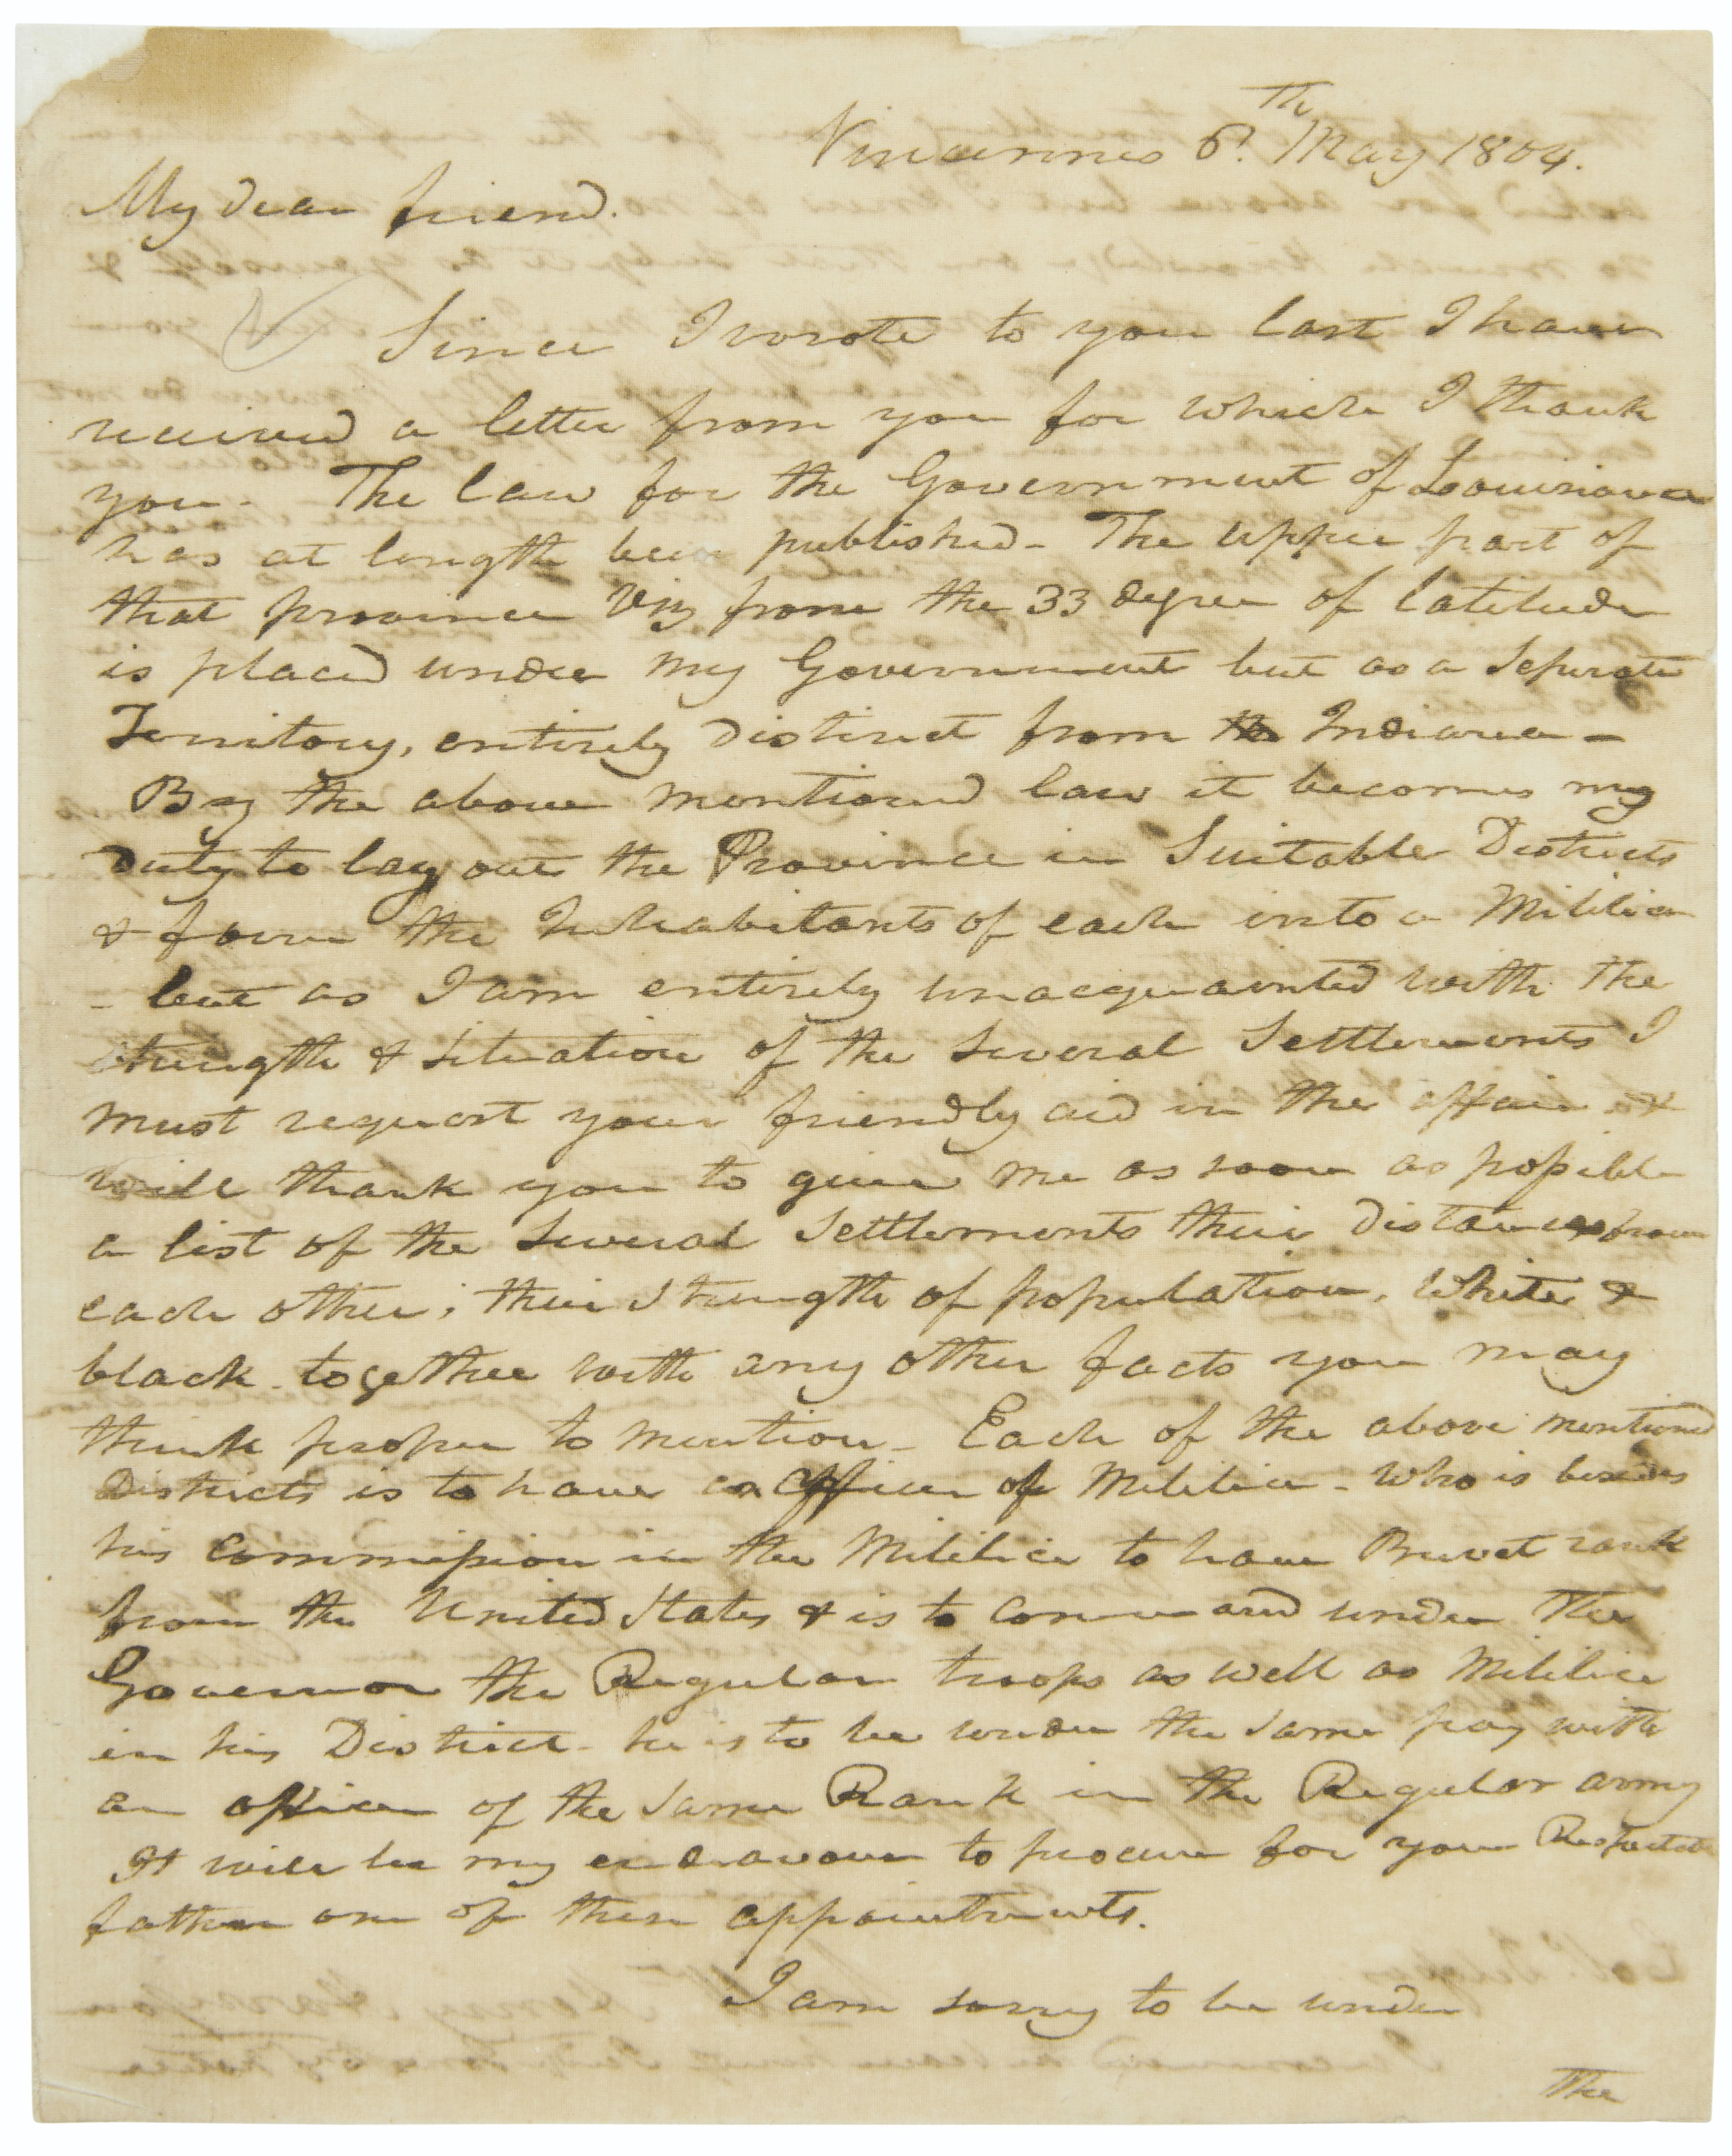 Vincennes 6th May 1804.
My dear friend.
Since I wrote to you last I have
received a letter from you for which I thank
you. The law for the Government of Louisiana
has at length been published - The upper part of
that province Viz from the 33 degree of latitude
is placed under my Government but as a Seperate
Territory, entirely distinct from the Indiana -
By the above mentioned law it becomes my
duty to lay out the Province in Suitable Districts
& form the Inhabitants of each into a Militia
- but as I am entirely unacquainted with the
strength & situation of the Several Settlements I
must request your friendly aid in the affair &
will thank you to give me as soon as possible
a list of the Several Settlements their distances from
each other; their Strength of population, White &
black together with any other facts you may
think proper to mention - Each of the above mentioned
Districts is to have an Officer of Militia - who is besides
his commission in the Militia to have Brevet rank
from the United States & is to command under the
Governor the Regular troops as well as Militia
in his District - he is to be under the same pay with
an officer of the same Rank in the Regular army
It will be my endeavour to procure for your Respectable
father one of these appointments.
I am sorry to be under
the